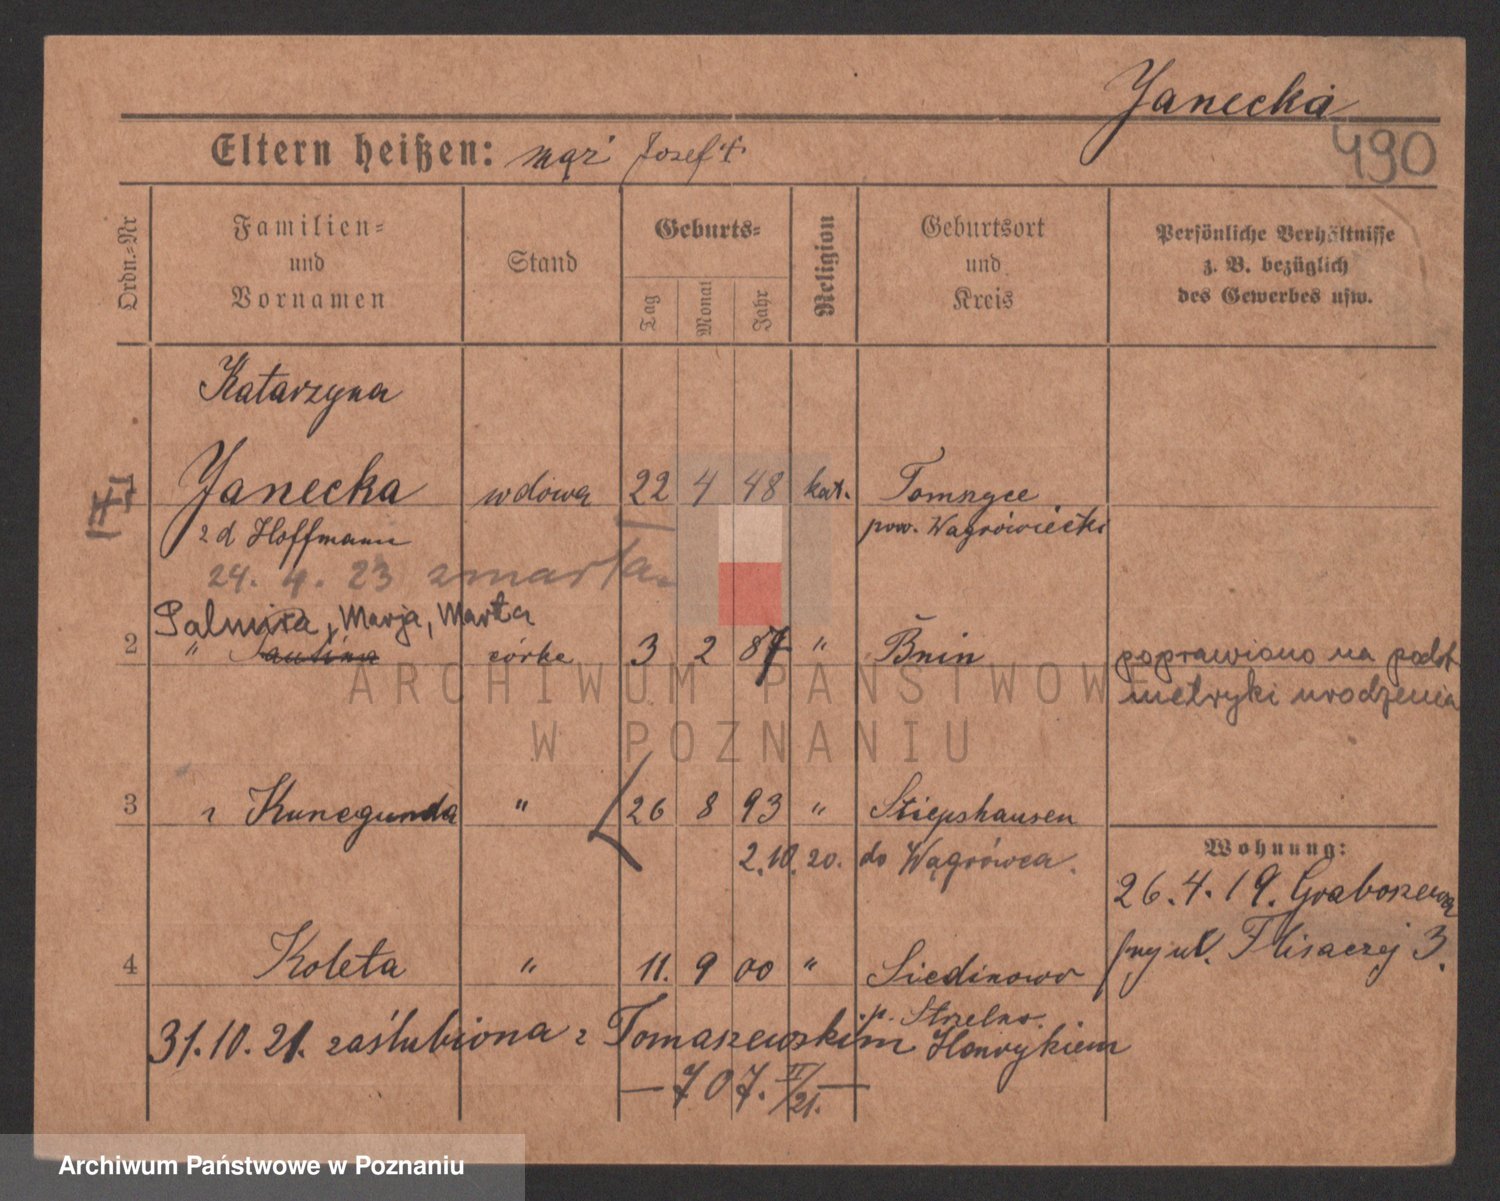 Janecka
490
Eltern heißen: mąż Józef †
Ordn.=Nr
Familien=
und
Vornamen
Stand
Geburts=
Tag
Monat
Jahr
Religion
Geburtsort
und
Kreis
Persönliche Verhältnisse
z. B. bezüglich
des Gewerbes usw.
Katarzyna
1 Janecka wdowa 22 4 48 kat. Tomnyce
z d Hoffmann pow. Wągrowiecki
24. 4. 23 zmarła
Palmira, Marja, Marta
2 " córka 3 2 87 " Bnin poprawiono na podst
metryki urodzenia
3 " Kunegunda " 26 8 93 " Stiepshausen
2.10.20. do Wągrówca.
Wohnung:
26.4.19. Graboszewo
przy ul. Flisaczej 3.
4 Koleta " 11. 9 00 " Siedinowo
p. Strzelno.
31.10.21. zaślubiona z Tomaszewskim Henrykiem
— 707. II/21. —
ARCHIWUM PAŃSTWOWE
W POZNANIU
Archiwum Państwowe w Poznaniu